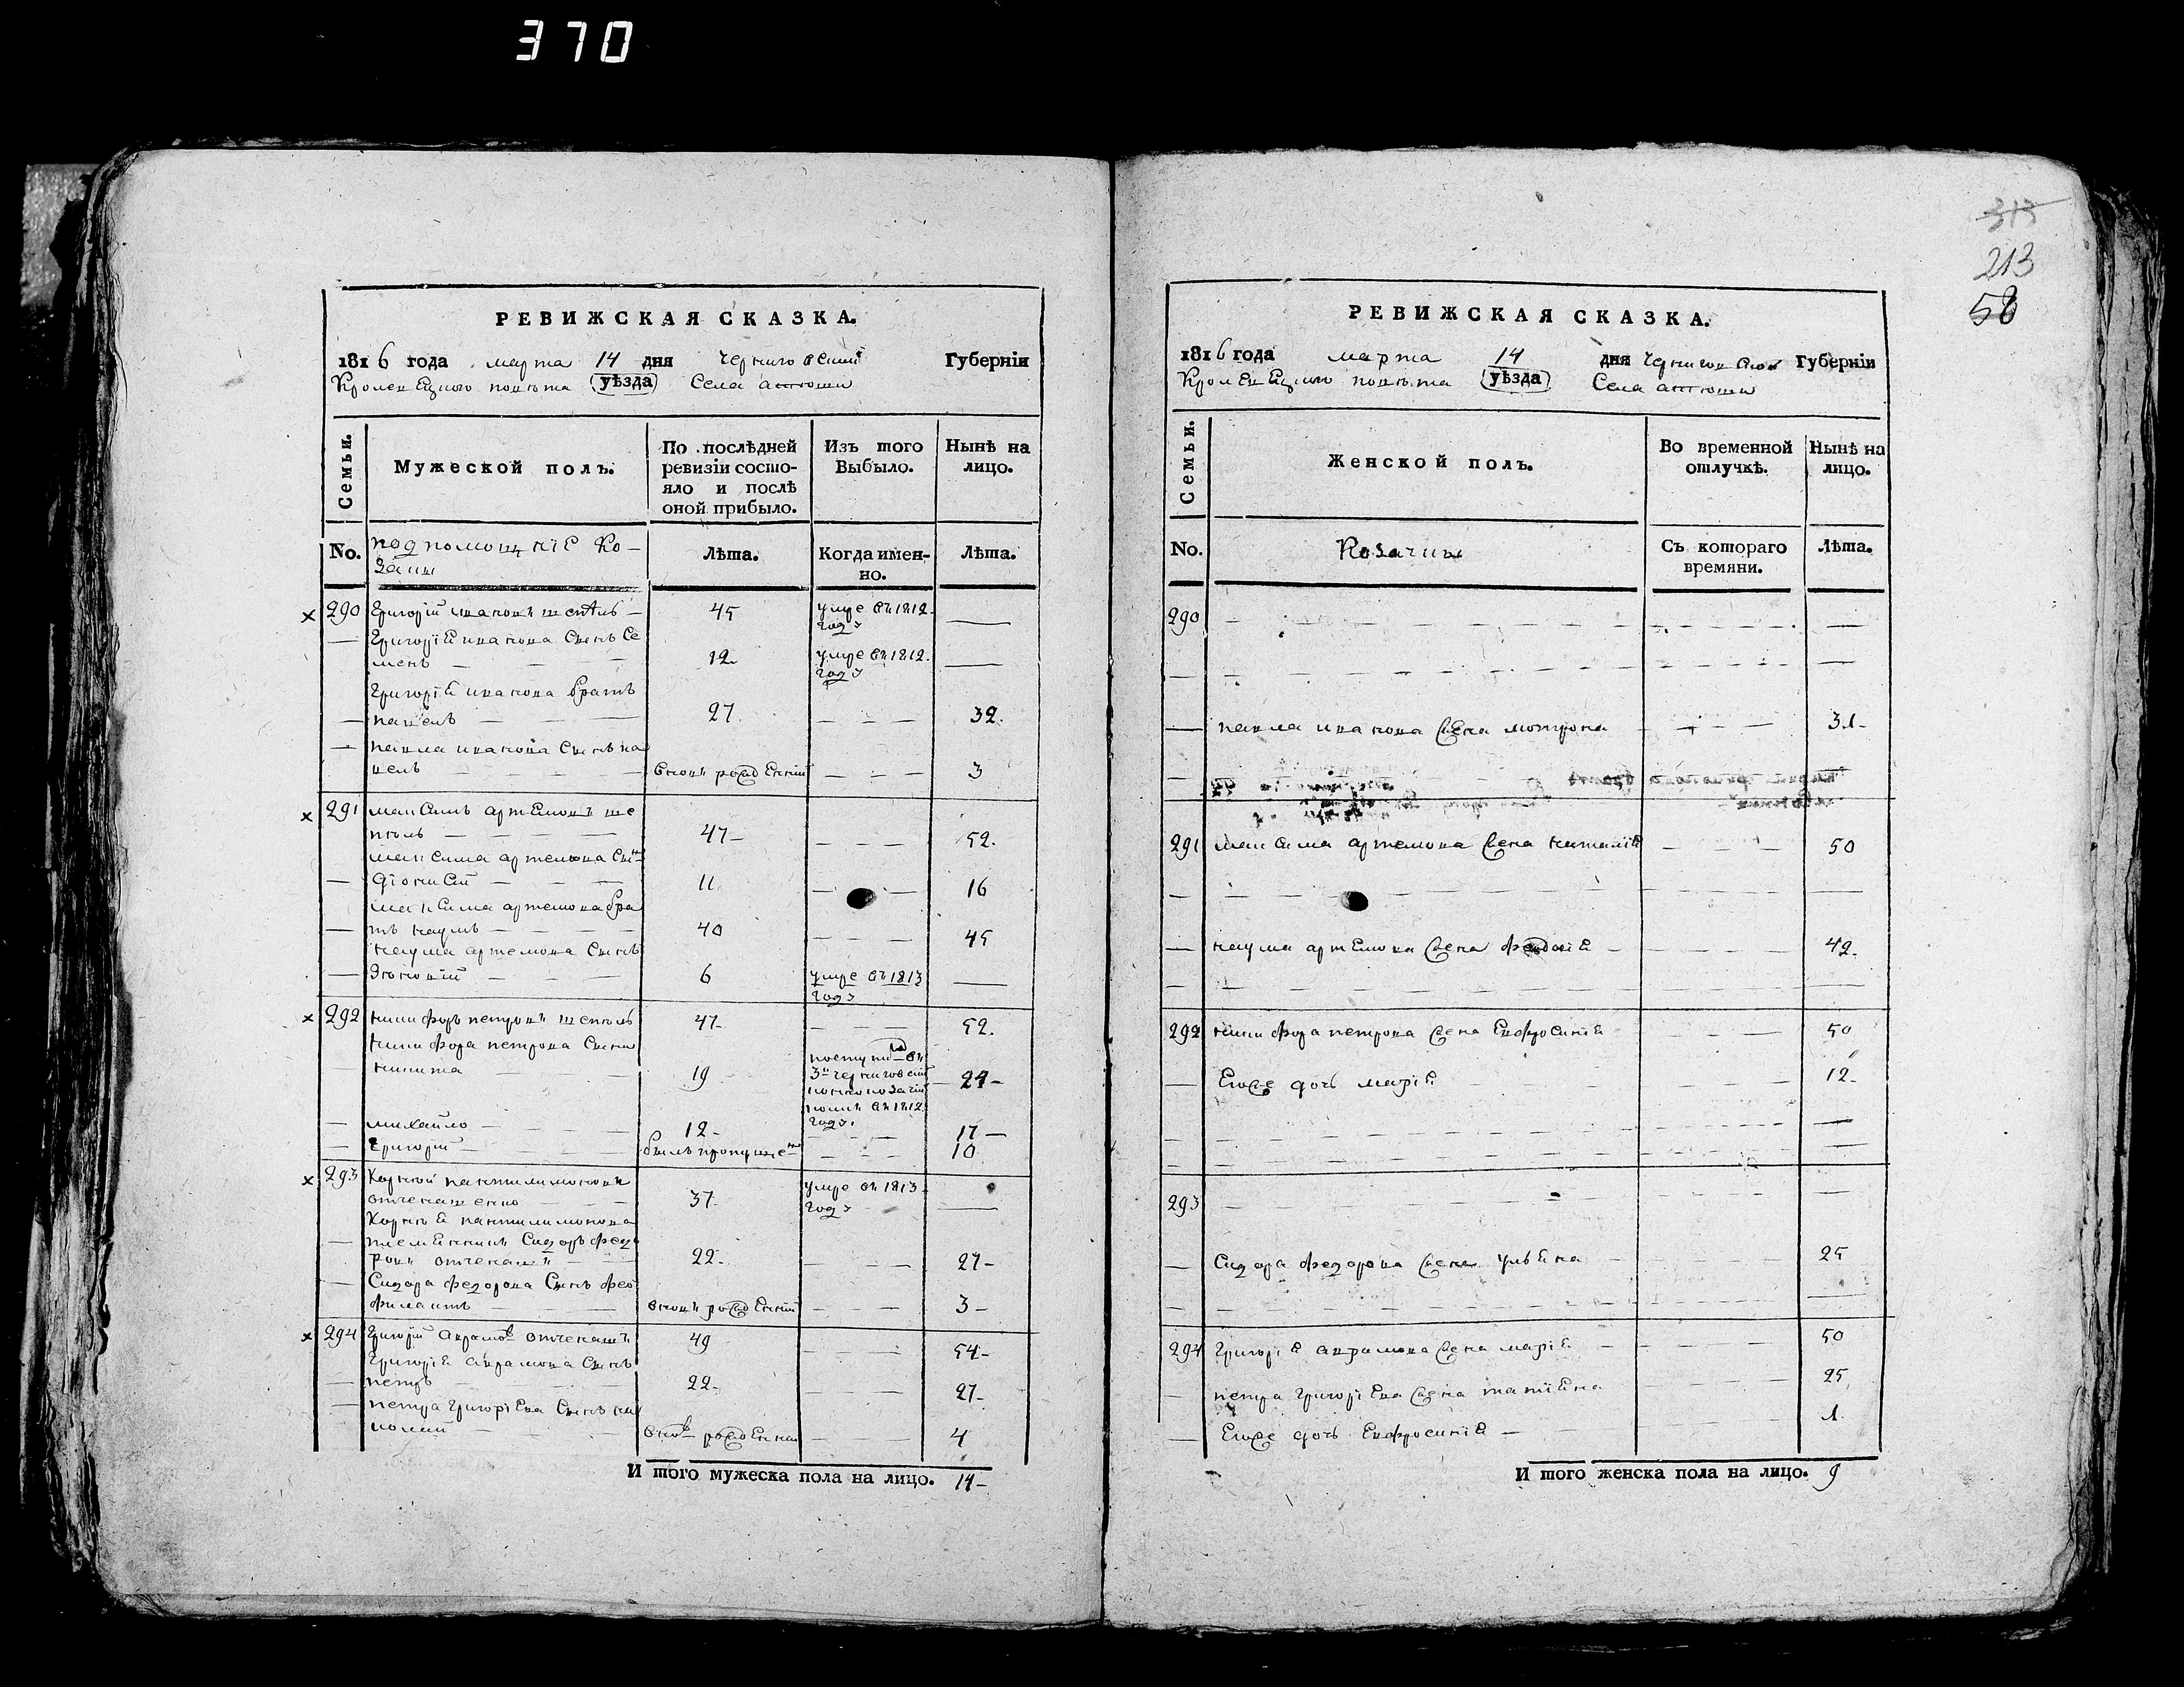 370
313
213
58
РЕВИЖСКАЯ СКАЗКА.
1816 года марта 14 дня Черниговской Губерніи
Кролевецкого повѣта (уѣзда) Села
Семьи.
Мужеской полъ.
По послѣдней ревизіи состо-
яло и послѣ
оной прибыло.
Изъ того
Выбыло.
Нынѣ на
лицо.
No.
подпомощніе Ко-
заки
Лѣта.
Когда имен-
но.
Лѣта.
290 Григорій ивановъ шепѣль 45 умре въ 1812
году
Григорія иванова Сынъ Се
менъ 12 умре въ 1812
году
Григорія иванова братъ
павелъ 27 32
павла иванова Сынъ па
велъ вновь рожденній 3
291 максимъ артемовъ ше
пель 47 52
максима артемова Сынъ
діонисій 11 16
максима артемова бра
тъ наумъ 40 45
наума артемова Сынъ
6 умре въ 1813
году
292 никифоръ петровъ шепель 47 52
никифора петрова Сыны
никита 19 поступил въ
3й черниговскій
козачій
полкъ въ 1812
году 24
михайло 12 17
Григорій былъ пропущен 10
293 Корній пантилимоновъ
37 умре въ 1813
году
Корнія пантилимонова
племенникъ Сидоръ федо
ровъ 22 27
Сидора федорова Сынъ фео
филактъ вновь рожденній 3
294 Григорій аврамов 49 54
Григорія аврамова Сынъ
петръ 22 27
петра Григоріева Сынъ ни
колай внов рожденній 4
И того мужеска пола на лицо. 14
РЕВИЖСКАЯ СКАЗКА.
1816 года марта 14 дня Черниговской Губерніи
Кролевецкого повѣта (уѣзда) Села
Семьи.
Женской полъ.
Во временной
отлучкѣ.
Нынѣ на
лицо.
No.
Козачки
Съ котораго
времяни.
Лѣта.
290
павла иванова жена мотрона 31
291 максима артемова жена наталія 50
наума артемова жена 42
292 никифора петрова жена Евфросинія 50
Егоже дочь марія 12
293
Сидора федорова жена ульяна 25
294 Григорія аврамова жена марія 50
петра Григоріева жена татіяна 25
Егоже дочь Евфросинія 1
И того женска пола на лицо. 9